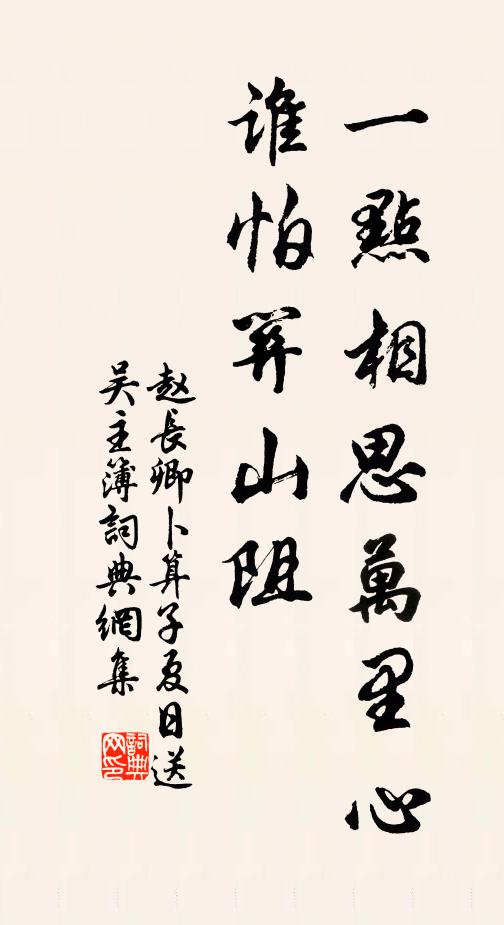 一點相思萬里心
誰怕関山阻
赵長卿卜算子夏日送
吴主簿詞典網集
詞典
网印